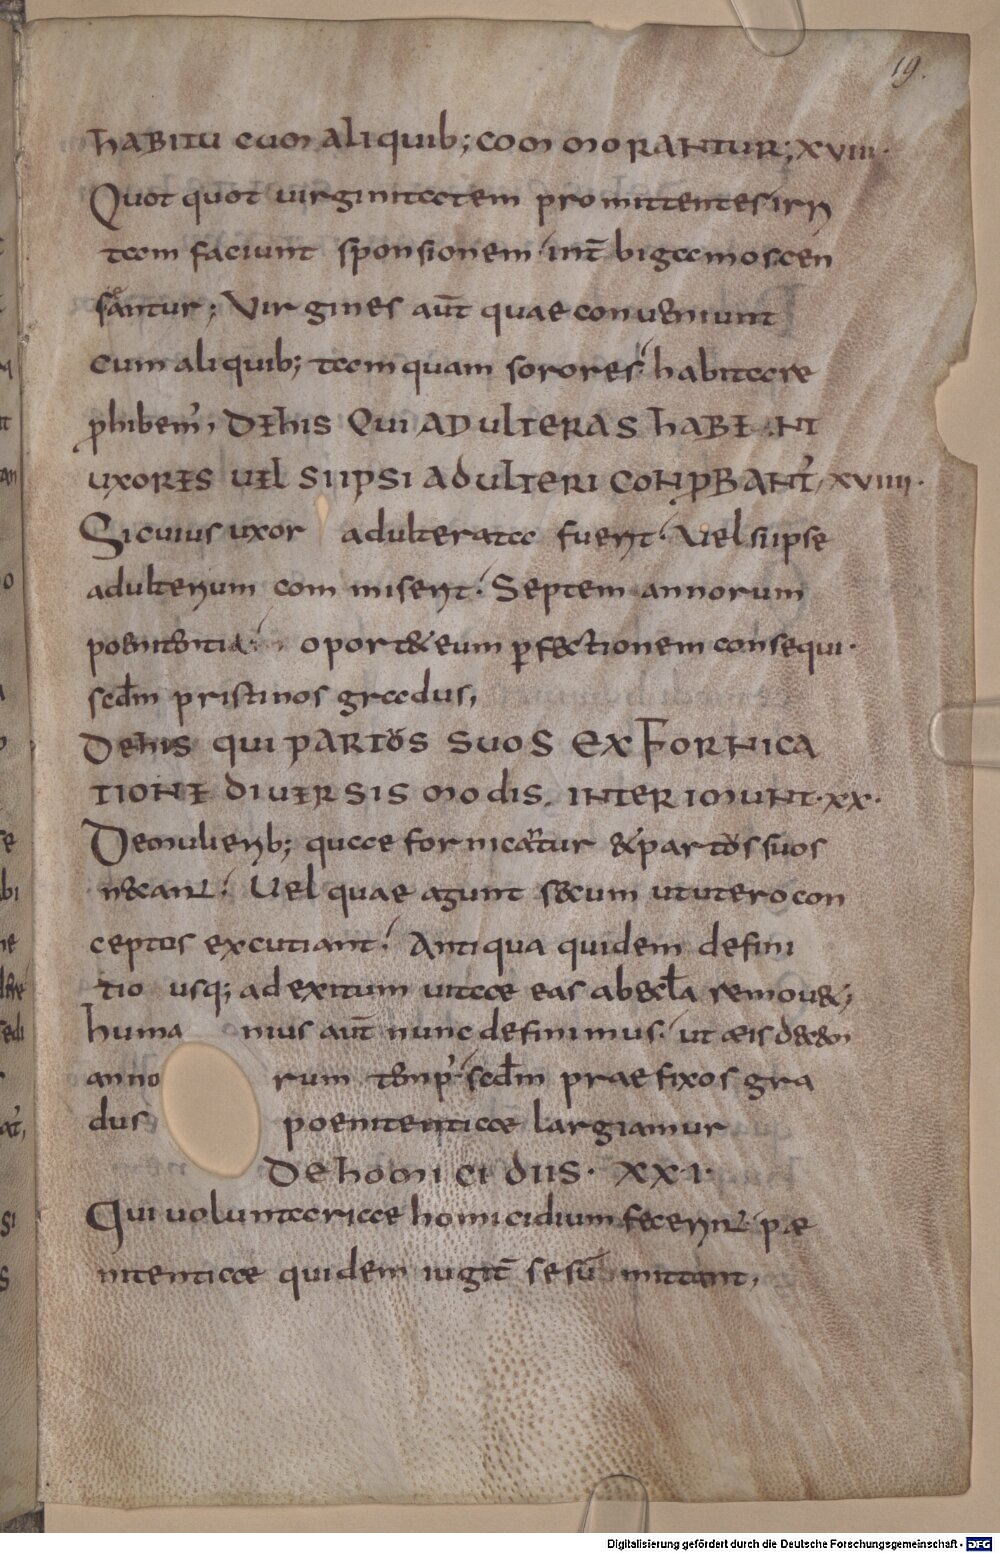 19.
habitu cum aliquib; commorantur; XVIII.
Quot quot virginitatem promittentes irri
tam faciunt sponsionem int̄ bigamos cen
sęantur; Virgines aūt quae conveniunt
cum aliquib; tamquam sorores habitare
ꝓhibem᾽, DE HIS QUI ADULTERAS HABENT
UXORES VEL SI IPSI ADULTERI CONꝓBANT᾽, XVIIII.
Si cuius uxor adulterata fuerit. Vel si ipse
adulterium commiserit. Septem annorum
poenitentia oport& eum ꝑfectionem consequi.
sec̄dm pristinos gradus,
DE HIS QUI PARTOS SUOS EX FORNICA
TIONE DIVERSIS MODIS INTERIMUNT. XX.
De mulierib; quae fornicantur & partos suos
necant. Vel quae agunt secum ut utero con
ceptos excutiant. Antiqua quidem defini
tio usq; ad exitum vitae eas ab eccl̄a remov&;
huma nius aūt nunc definimus. ut eis decem
anno rum temp᾽ sec̄dm praefixos gra
dus poenitentiae largiamur
De homicidiis. XXI.
Qui voluntariae homicidium fecerint pae
nitentiae quidem iugit̄ se sūmittant,
Digitalisierung gefördert durch die Deutsche Forschungsgemeinschaft - DFG